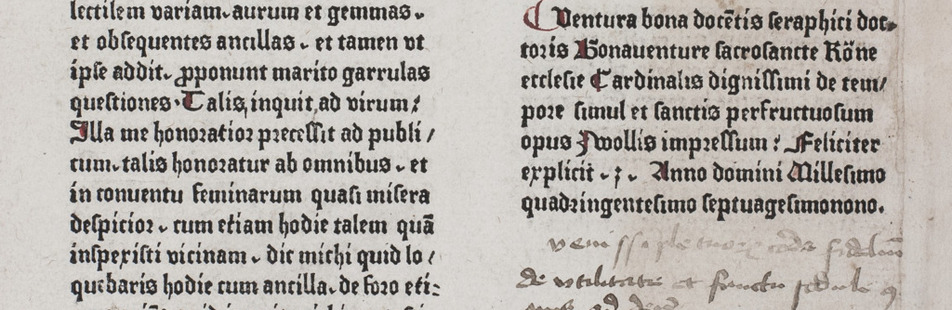 lectilem variam. aurum et gemmas.
et obsequentes ancillas. et tamen vt
ipse addit. ꝓponunt marito garrulas
questiones. Talis, inquit, ad virum:
Illa me honoratior precessit ad publi/
cum. talis honoratur ab omnibus. et
in conuentu feminarum quasi misera
despicior. cum etiam hodie talem quā
inspexisti vicinam. dic michi quid lo/
quebaris hodie cum ancilla. de foro eti:
Ventura bona docētis seraphici doc
toris Bonauenture sacrosancte Rōne
ecclesie Cardinalis dignissimi de tem/
pore simul et sanctis perfructuosum
opus Zwollis impressum: Feliciter
explicit.;. Anno domini Millesimo
quadringentesimo septuagesimonono.
de vtilitate et